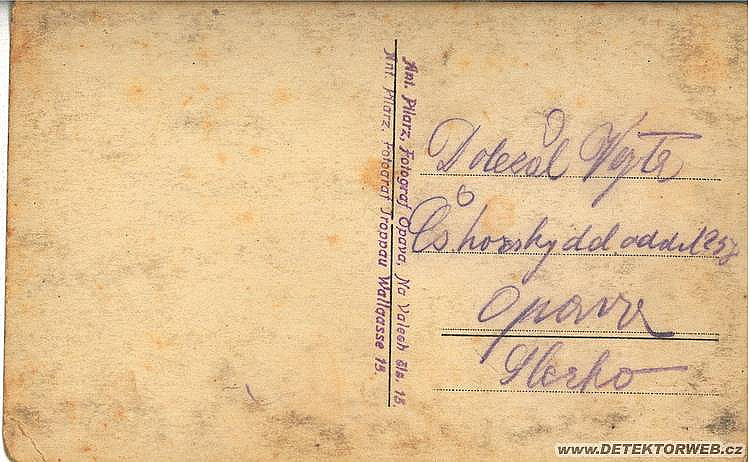 Ant. Pilarz, Fotograf Opava, Na Valech čís. 15.
Ant. Pilarz, Fotograf Troppau Wallgasse 15.
Doležal
Čs horský děl. oddíl 258
Opava
Slezko
www.DETEKTORWEB.cz